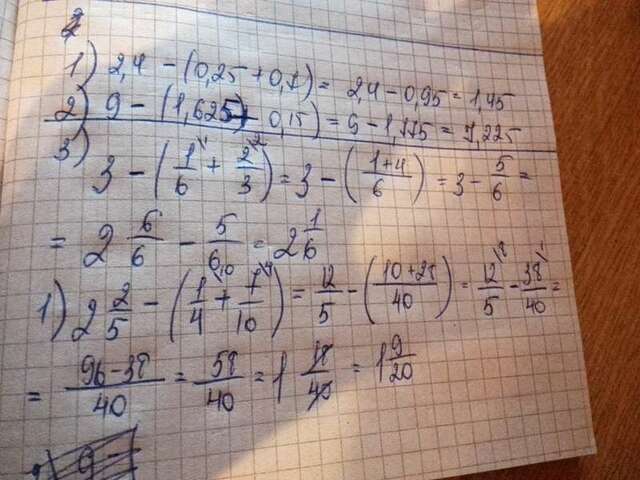 1) 2,4 - (0,25 + 0,7) = 2,4 - 0,95 = 1,45
2) 9 - (1,625 + 0,15) = 9 - 1,775 = 7,225
3) 3 - (1/6 + 2/3) = 3 - (1+4/6) = 3 - 5/6 =
= 2 6/6 - 5/6 = 2 1/6
1) 2 2/5 - (1/4 + 7/10) = 12/5 - (10+28/40) = 12/5 - 38/40 =
= 96-38/40 = 58/40 = 1 18/40 = 1 9/20